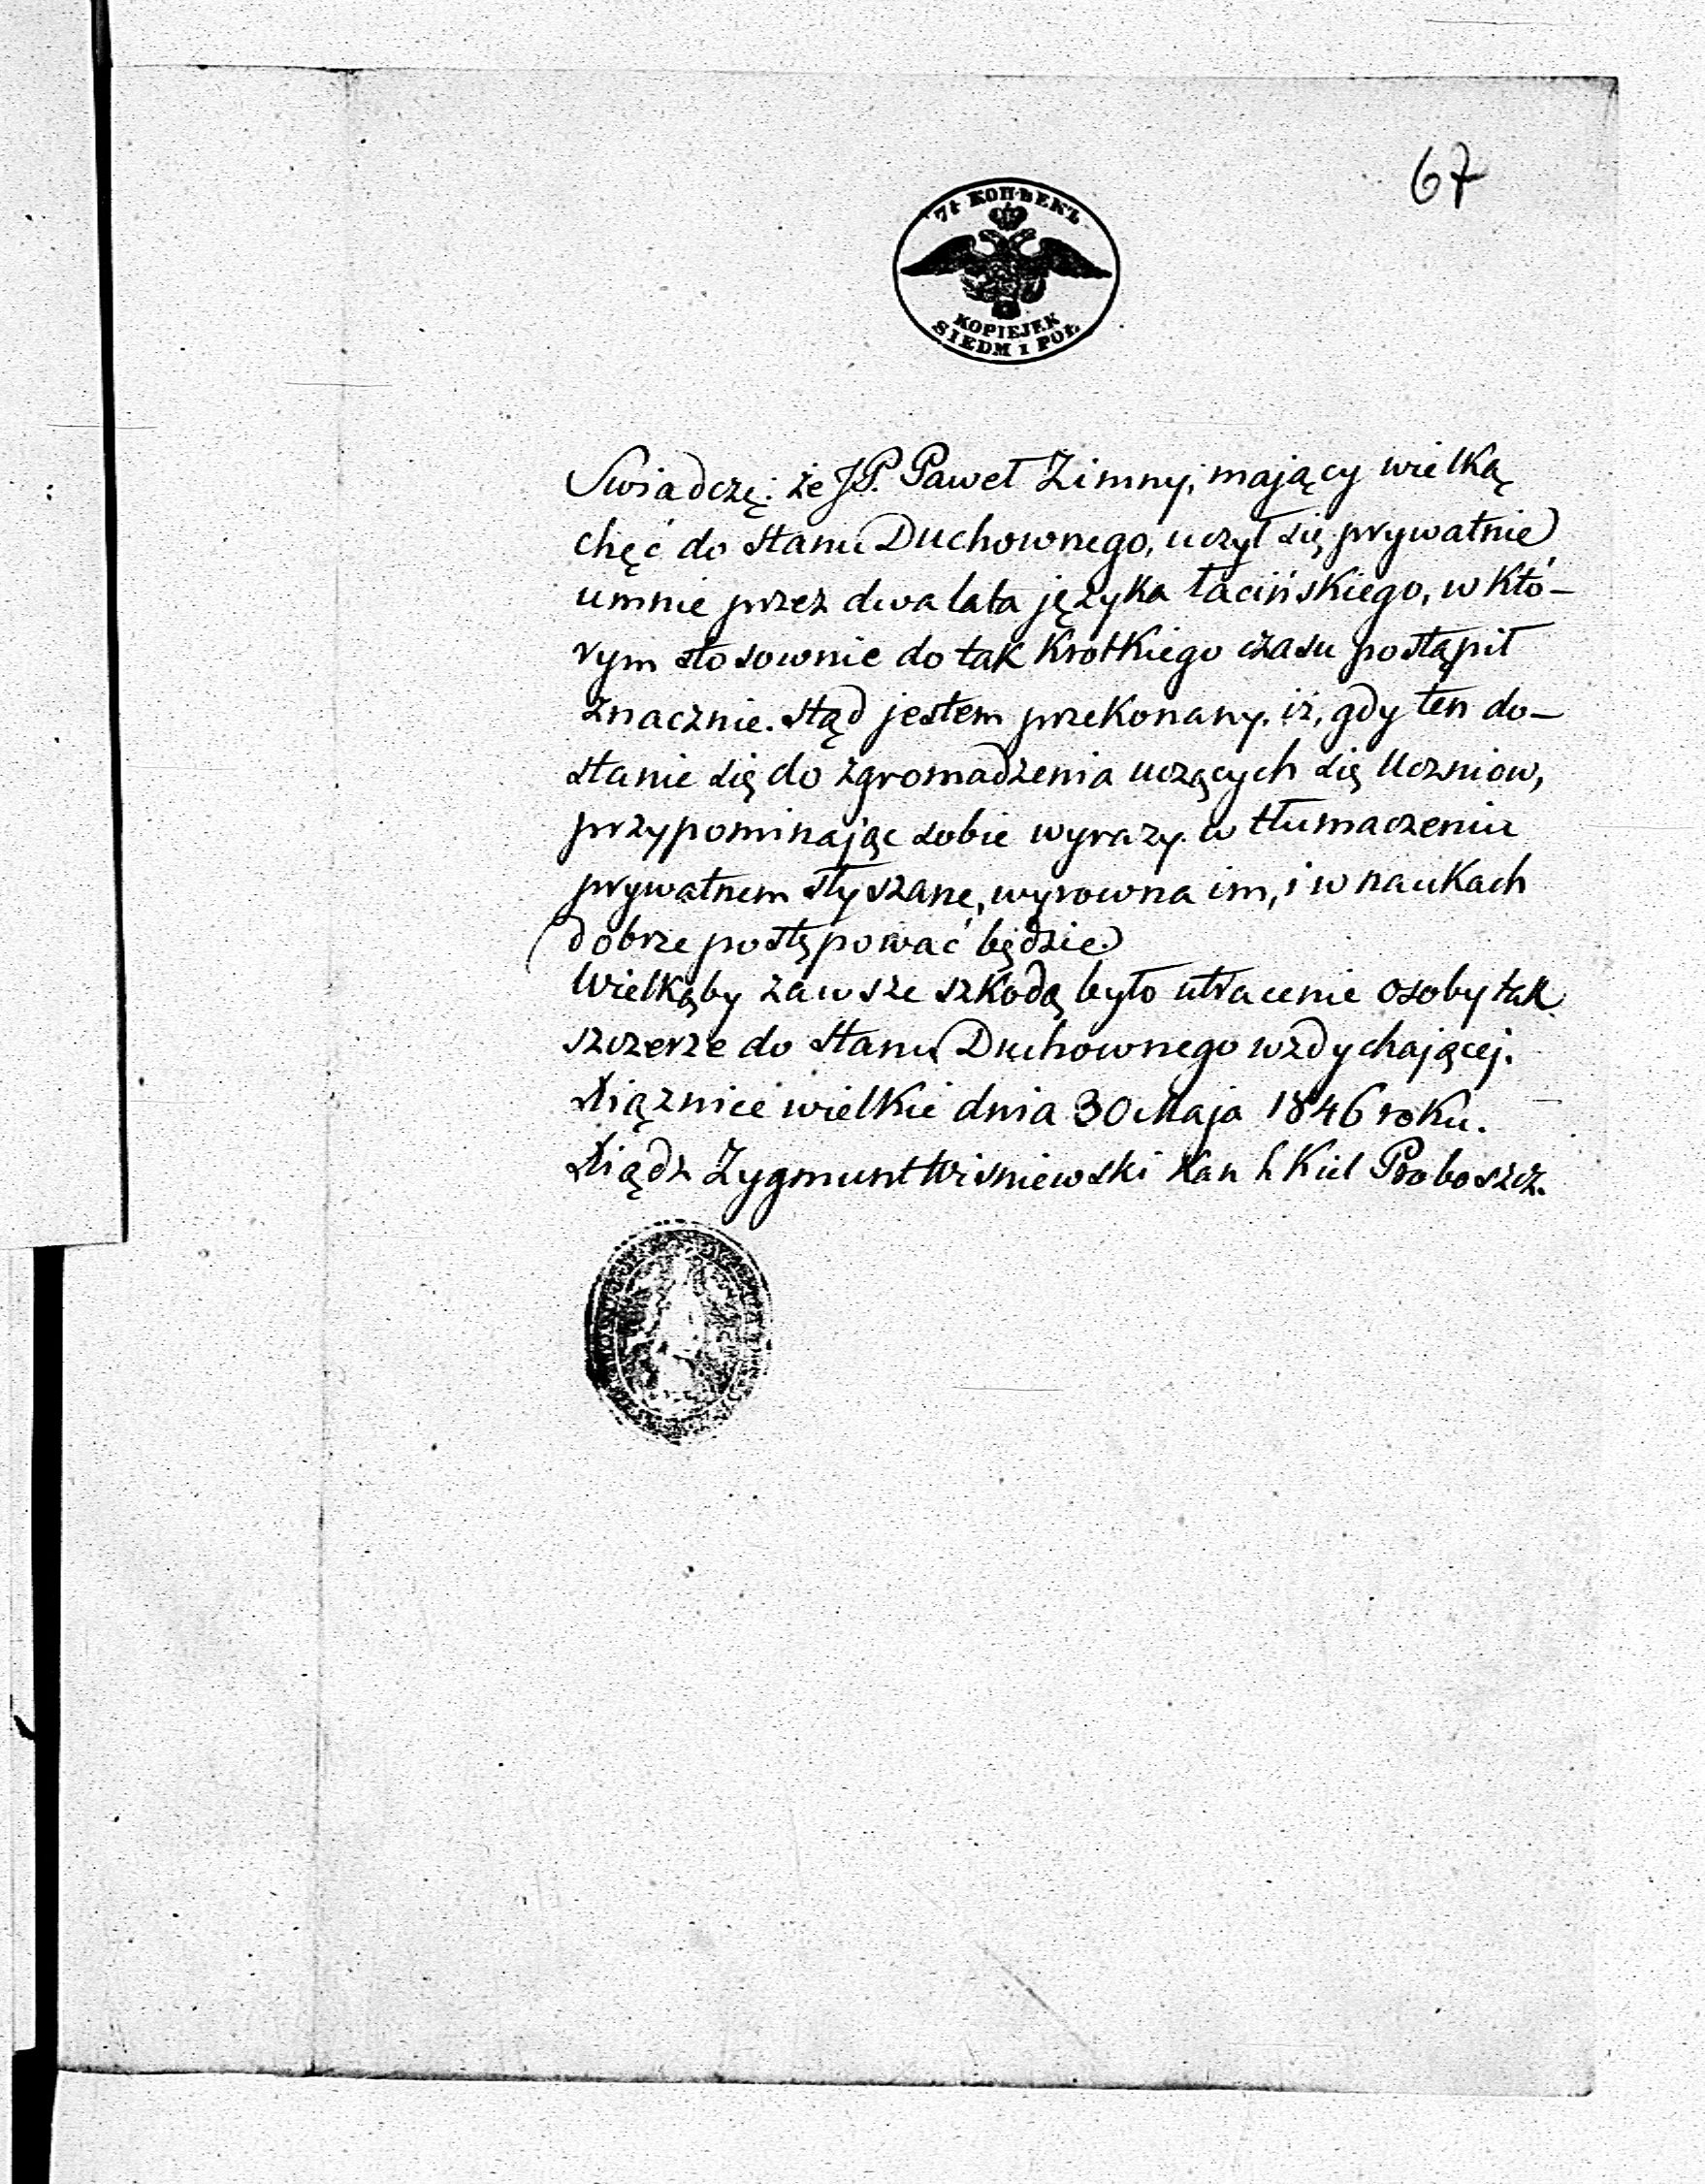 67
7½ КОПѢЕКЪ
KOPIEJEK
SIEDM I PÓŁ
Swiadczę: że JP. Paweł Zimny, mający wielką
chęć do stanu Duchownego, uczył się prywatnie
umnie przez dwa lata języka łacińskiego, w któ-
rym stosownie do tak krotkiego czasu postąpił
znacznie. Stąd jestem przekonany, iż, gdy ten do-
stanie się do zgromadzenia uczących się Uczniow,
przypominając sobie wyrazy w tłumaczeniu
prywatnem słyszane, wyrowna im, i w naukach
dobrze postępować będzie.
Wielkąby zawsze szkodą było utracenie osoby tak
szczerze do stanu Duchownego wzdychającej.
Xiąznice wielkie dnia 30 Maja 1846 roku.
Xiądz Zygmunt Wisniewski Kan h. Kiel Proboszcz.